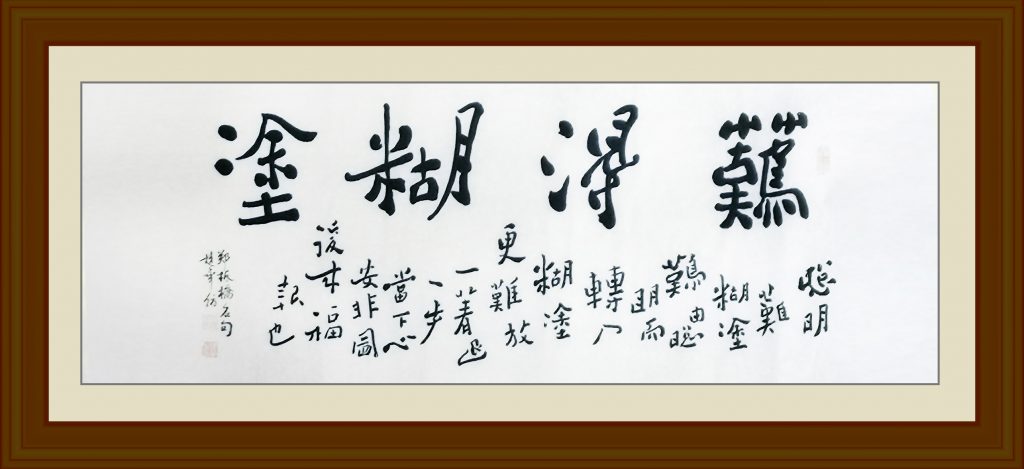 難得糊塗
聰明
難
糊塗
難由聰
明而
轉入
糊塗
更難放
一著退
一步
當下心
安非圖
後來福
報也
鄭板橋名句